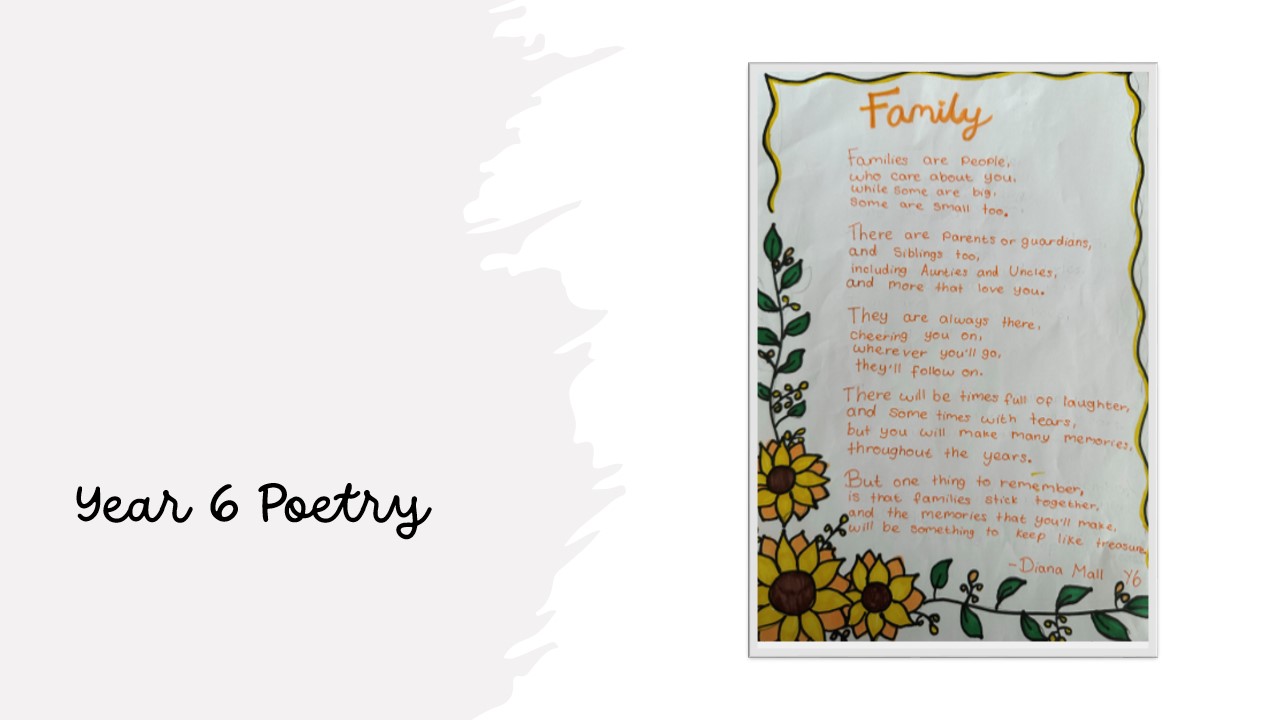 Year 6 Poetry
Family
Families are People,
who care about you.
while some are big,
some are small too.
There are Parents or guardians,
and Siblings too,
including Aunties and Uncles,
and more that love you.
They are always there,
cheering you on,
wherever you'll go,
they'll follow on.
There will be times full of laughter,
and some times with tears,
but you will make many memories,
throughout the years.
But one thing to remember,
is that families stick together,
and the memories that you'll make,
will be something to keep like treasure.
-Diana Mall Y6